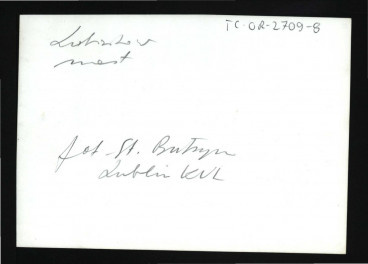 TC-OR-2709-8
most
fot. St. Butryn
Lublin KUL